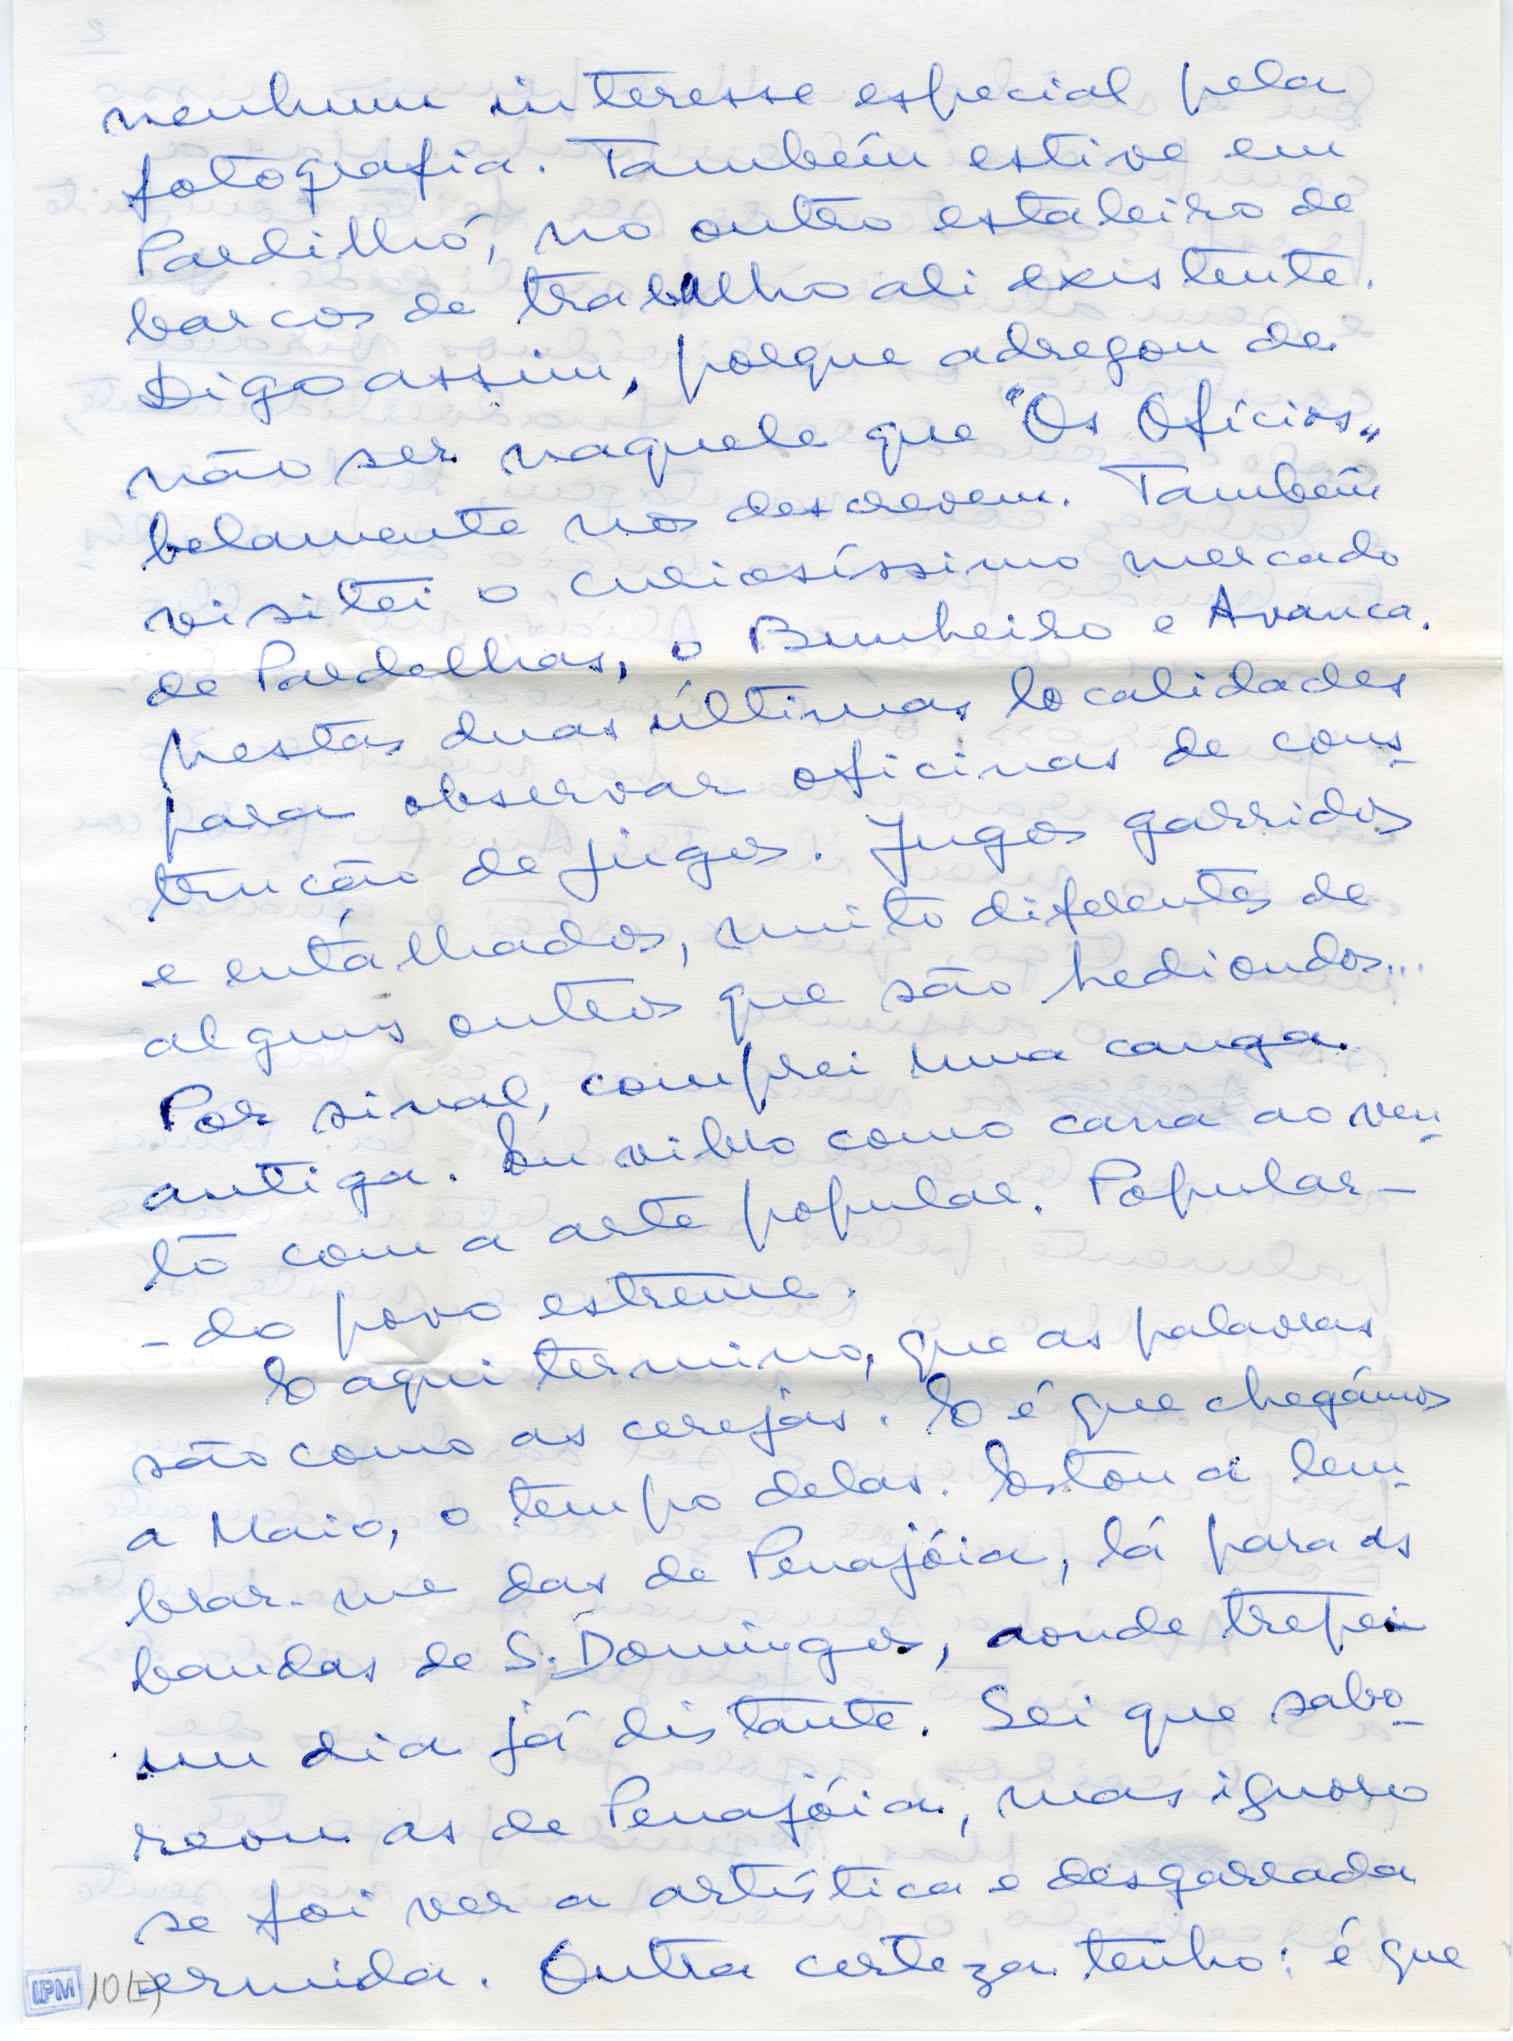 nenhum interesse especial pela
fotografia. Também estive em
Pardilhó, no outro estaleiro de
barcos de trabalho ali existente.
Digo assim, porque adregou de
não ser naquele que "Os Ofícios"
belamente nos descrevem. Também
visitei o curiosíssimo mercado
de Pardelhas, o Bunheiro e Avanca.
Nestas duas últimas localidades
para observar oficinas de cons-
trução de jugos. Jugos garridos
e entalhados, muito diferentes de
alguns outros que são hediondos...
Por sinal, comprei uma canga
antiga. Eu vibro como cana ao ven-
to com a arte popular. Popular-
-do povo estreme.
E aqui termino, que as palavras
são como as cerejas. E é que chegámos
a Maio, o tempo delas. Estou a lem-
brar-me das de Penajóia, lá para as
bandas de S. Domingos, aonde trepei
um dia já distante. Sei que sabo-
reou as de Penajóia, mas ignoro
se foi ver a artística e desgarrada
ermida. Outra certeza tenho: é que
IPM 10(I)
2